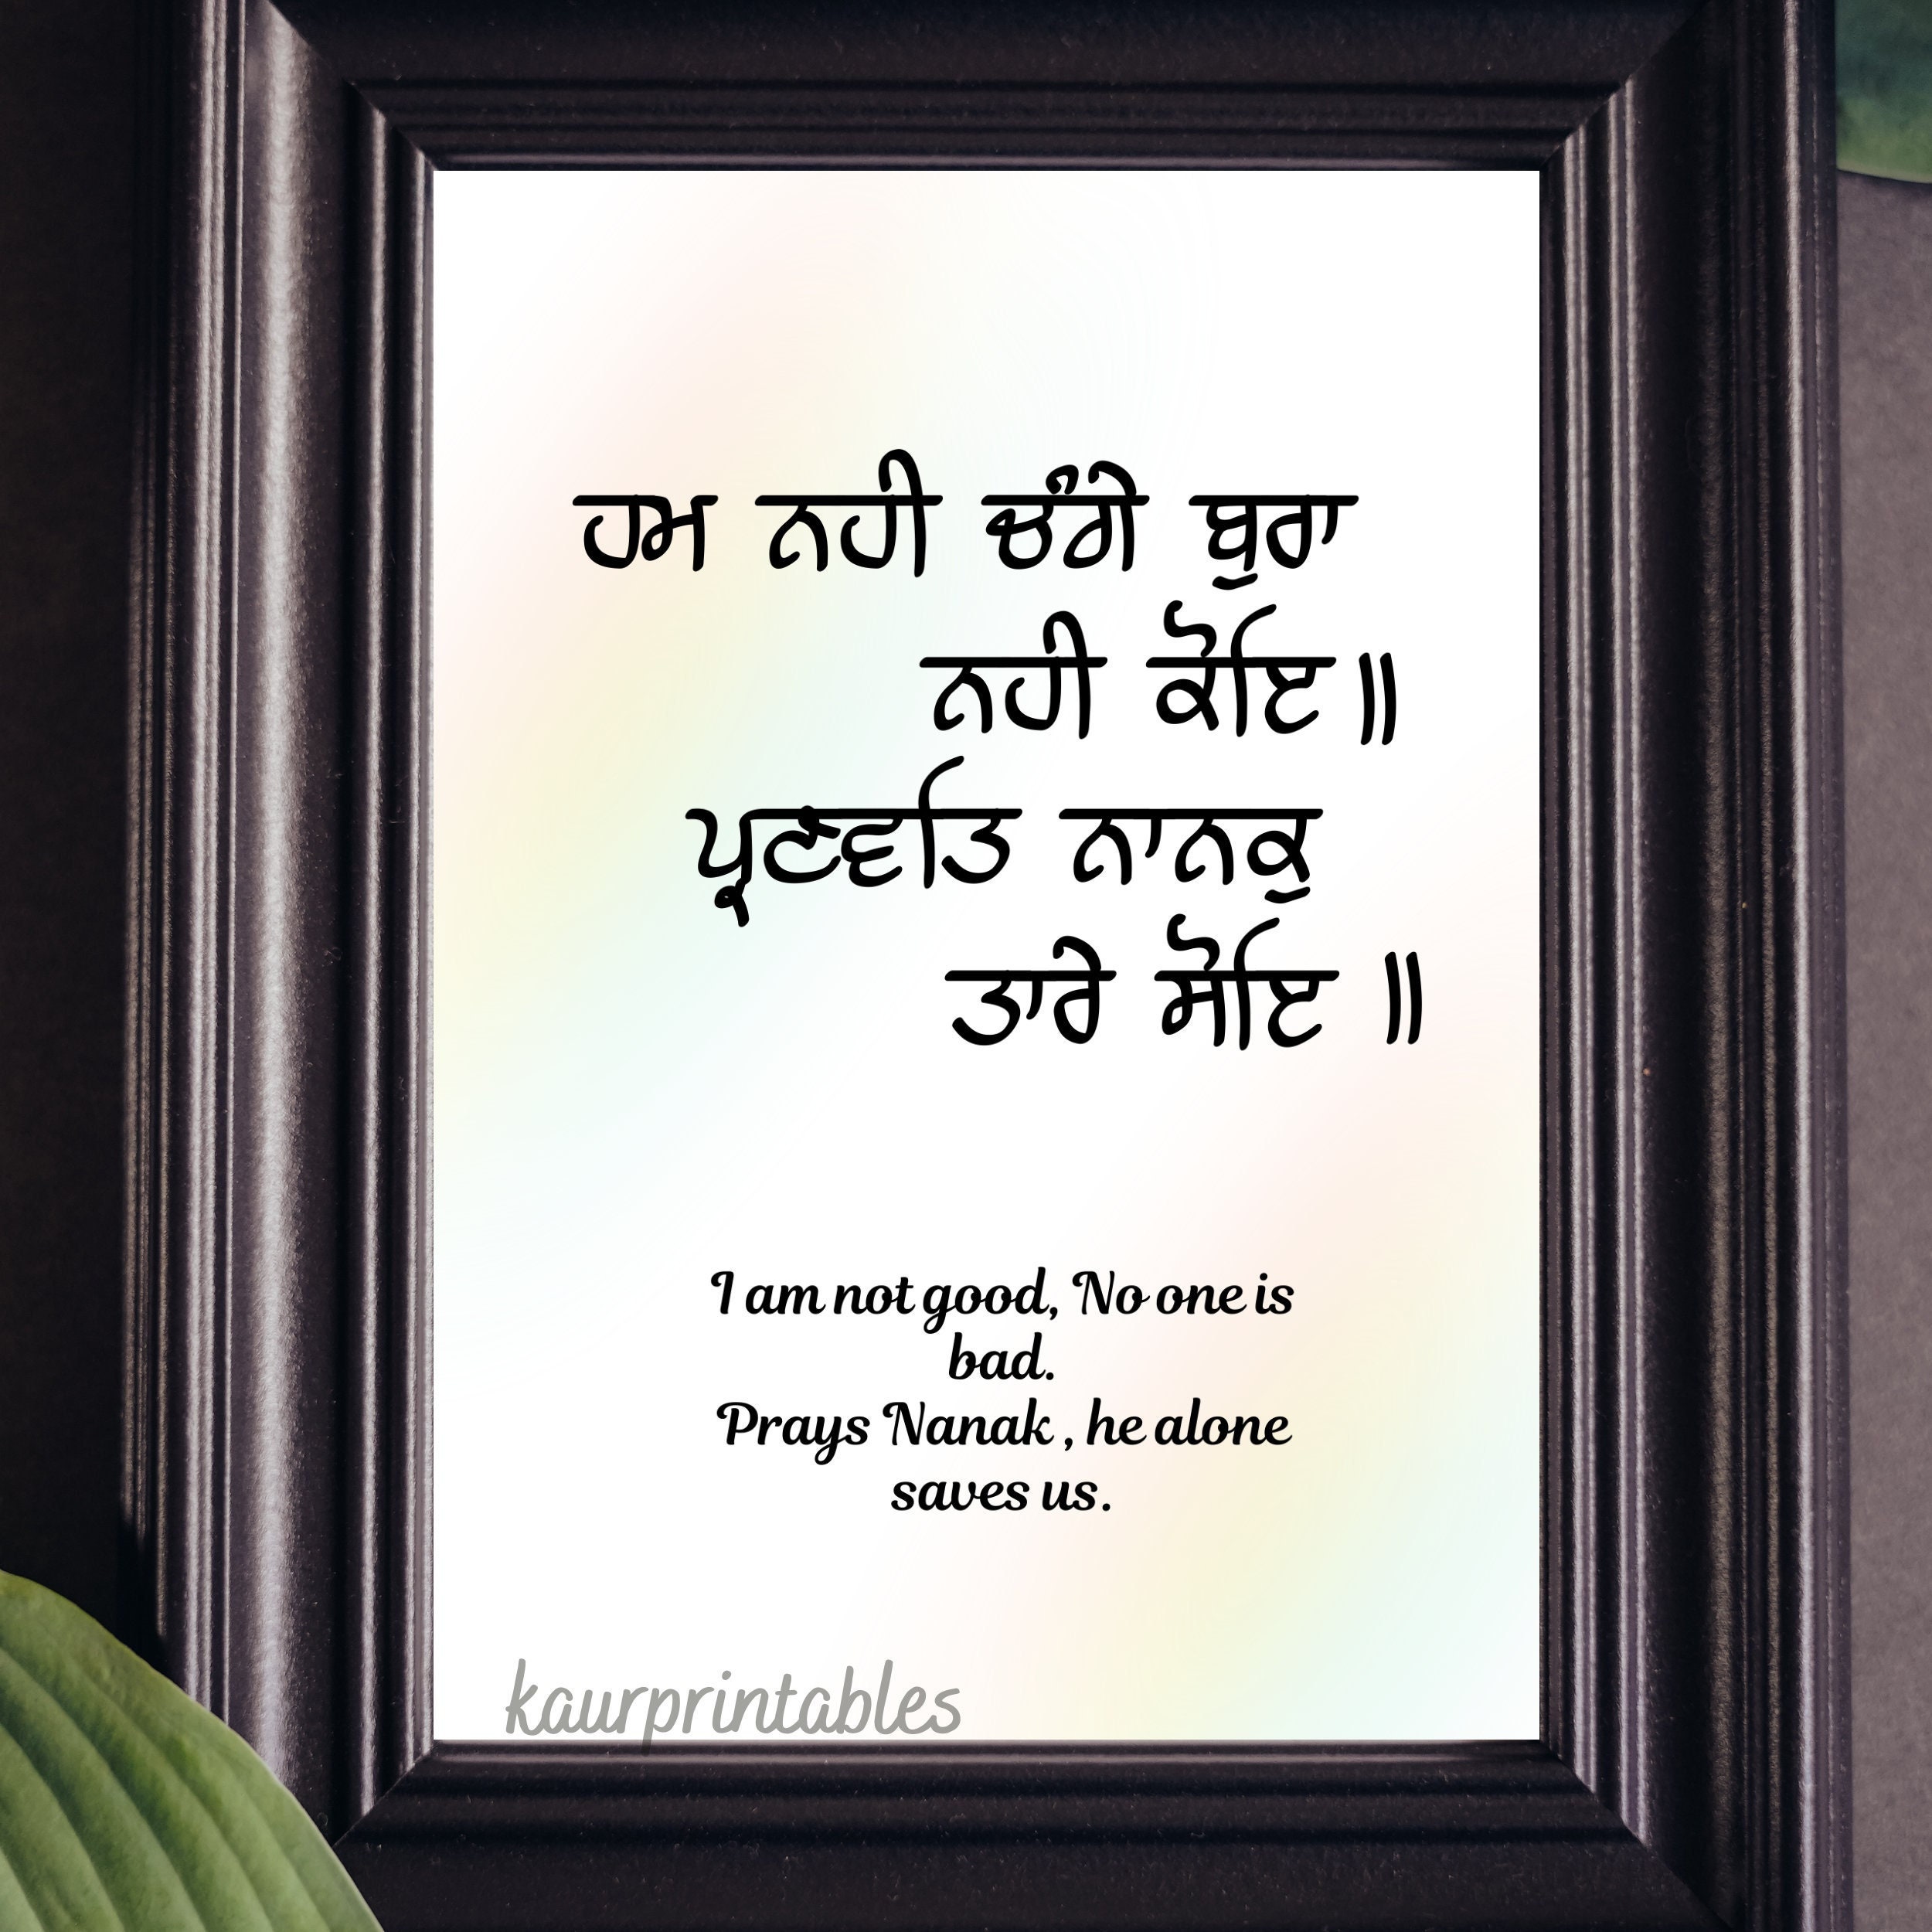 ਹਮ ਨਹੀ ਚੰਗੇ ਬੁਰਾ
ਨਹੀ ਕੋਇ॥
ਪ੍ਰਣਵਤਿ ਨਾਨਕੁ
ਤਾਰੇ ਸੋਇ ॥
I am not good, No one is
bad.
Prays Nanak , he alone
saves us.
kaurprintables